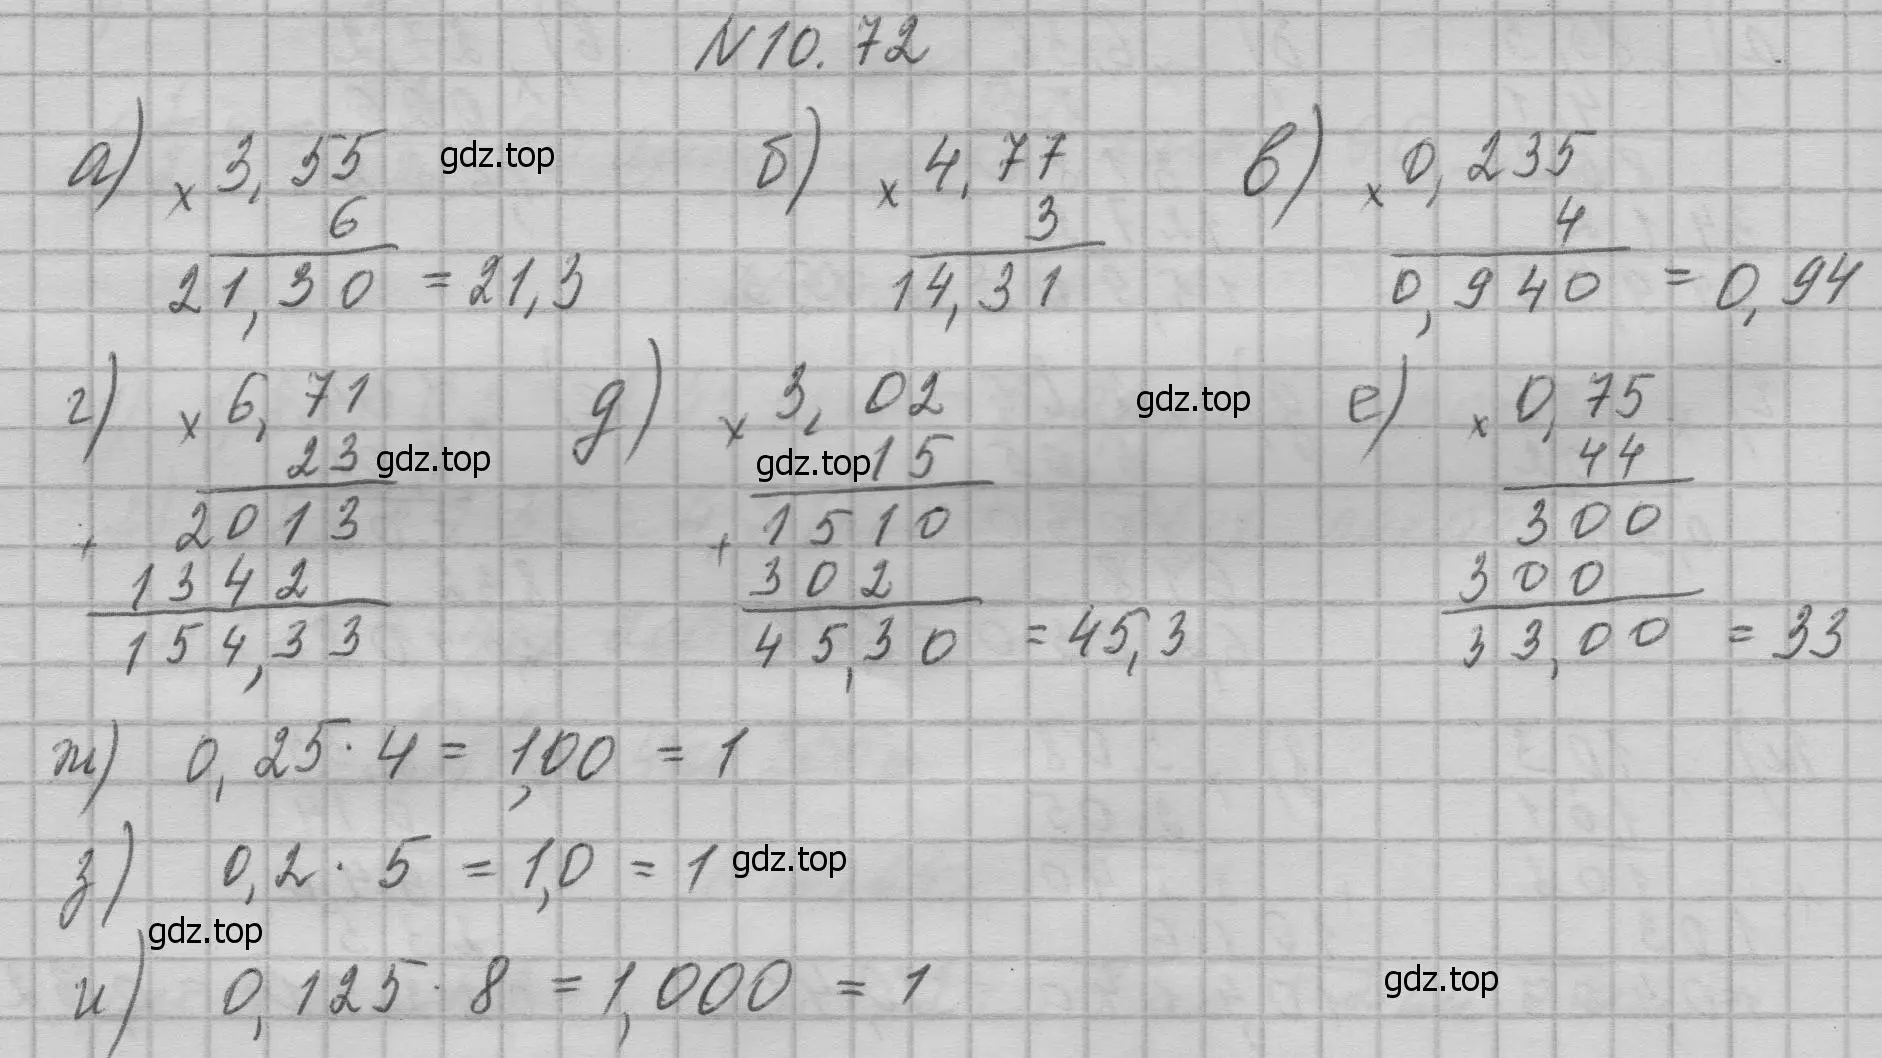 N 10.72
а) × 3,55 gdz.top б) × 4,77 в) × 0,235
6 3 4
21,30 = 21,3 14,31 0,940 = 0,94
г) × 6,71 д) × 3,02 gdz.top е) × 0,75
23 gdz.top gdz.top 15 44
+ 2013 + 1510 300
1342 302 300
154,33 45,30 = 45,3 33,00 = 33
ж) 0,25 · 4 = 1,00 = 1
з) 0,2 · 5 = 1,0 = 1 gdz.top
gdz.top
и) 0,125 · 8 = 1,000 = 1 gdz.top